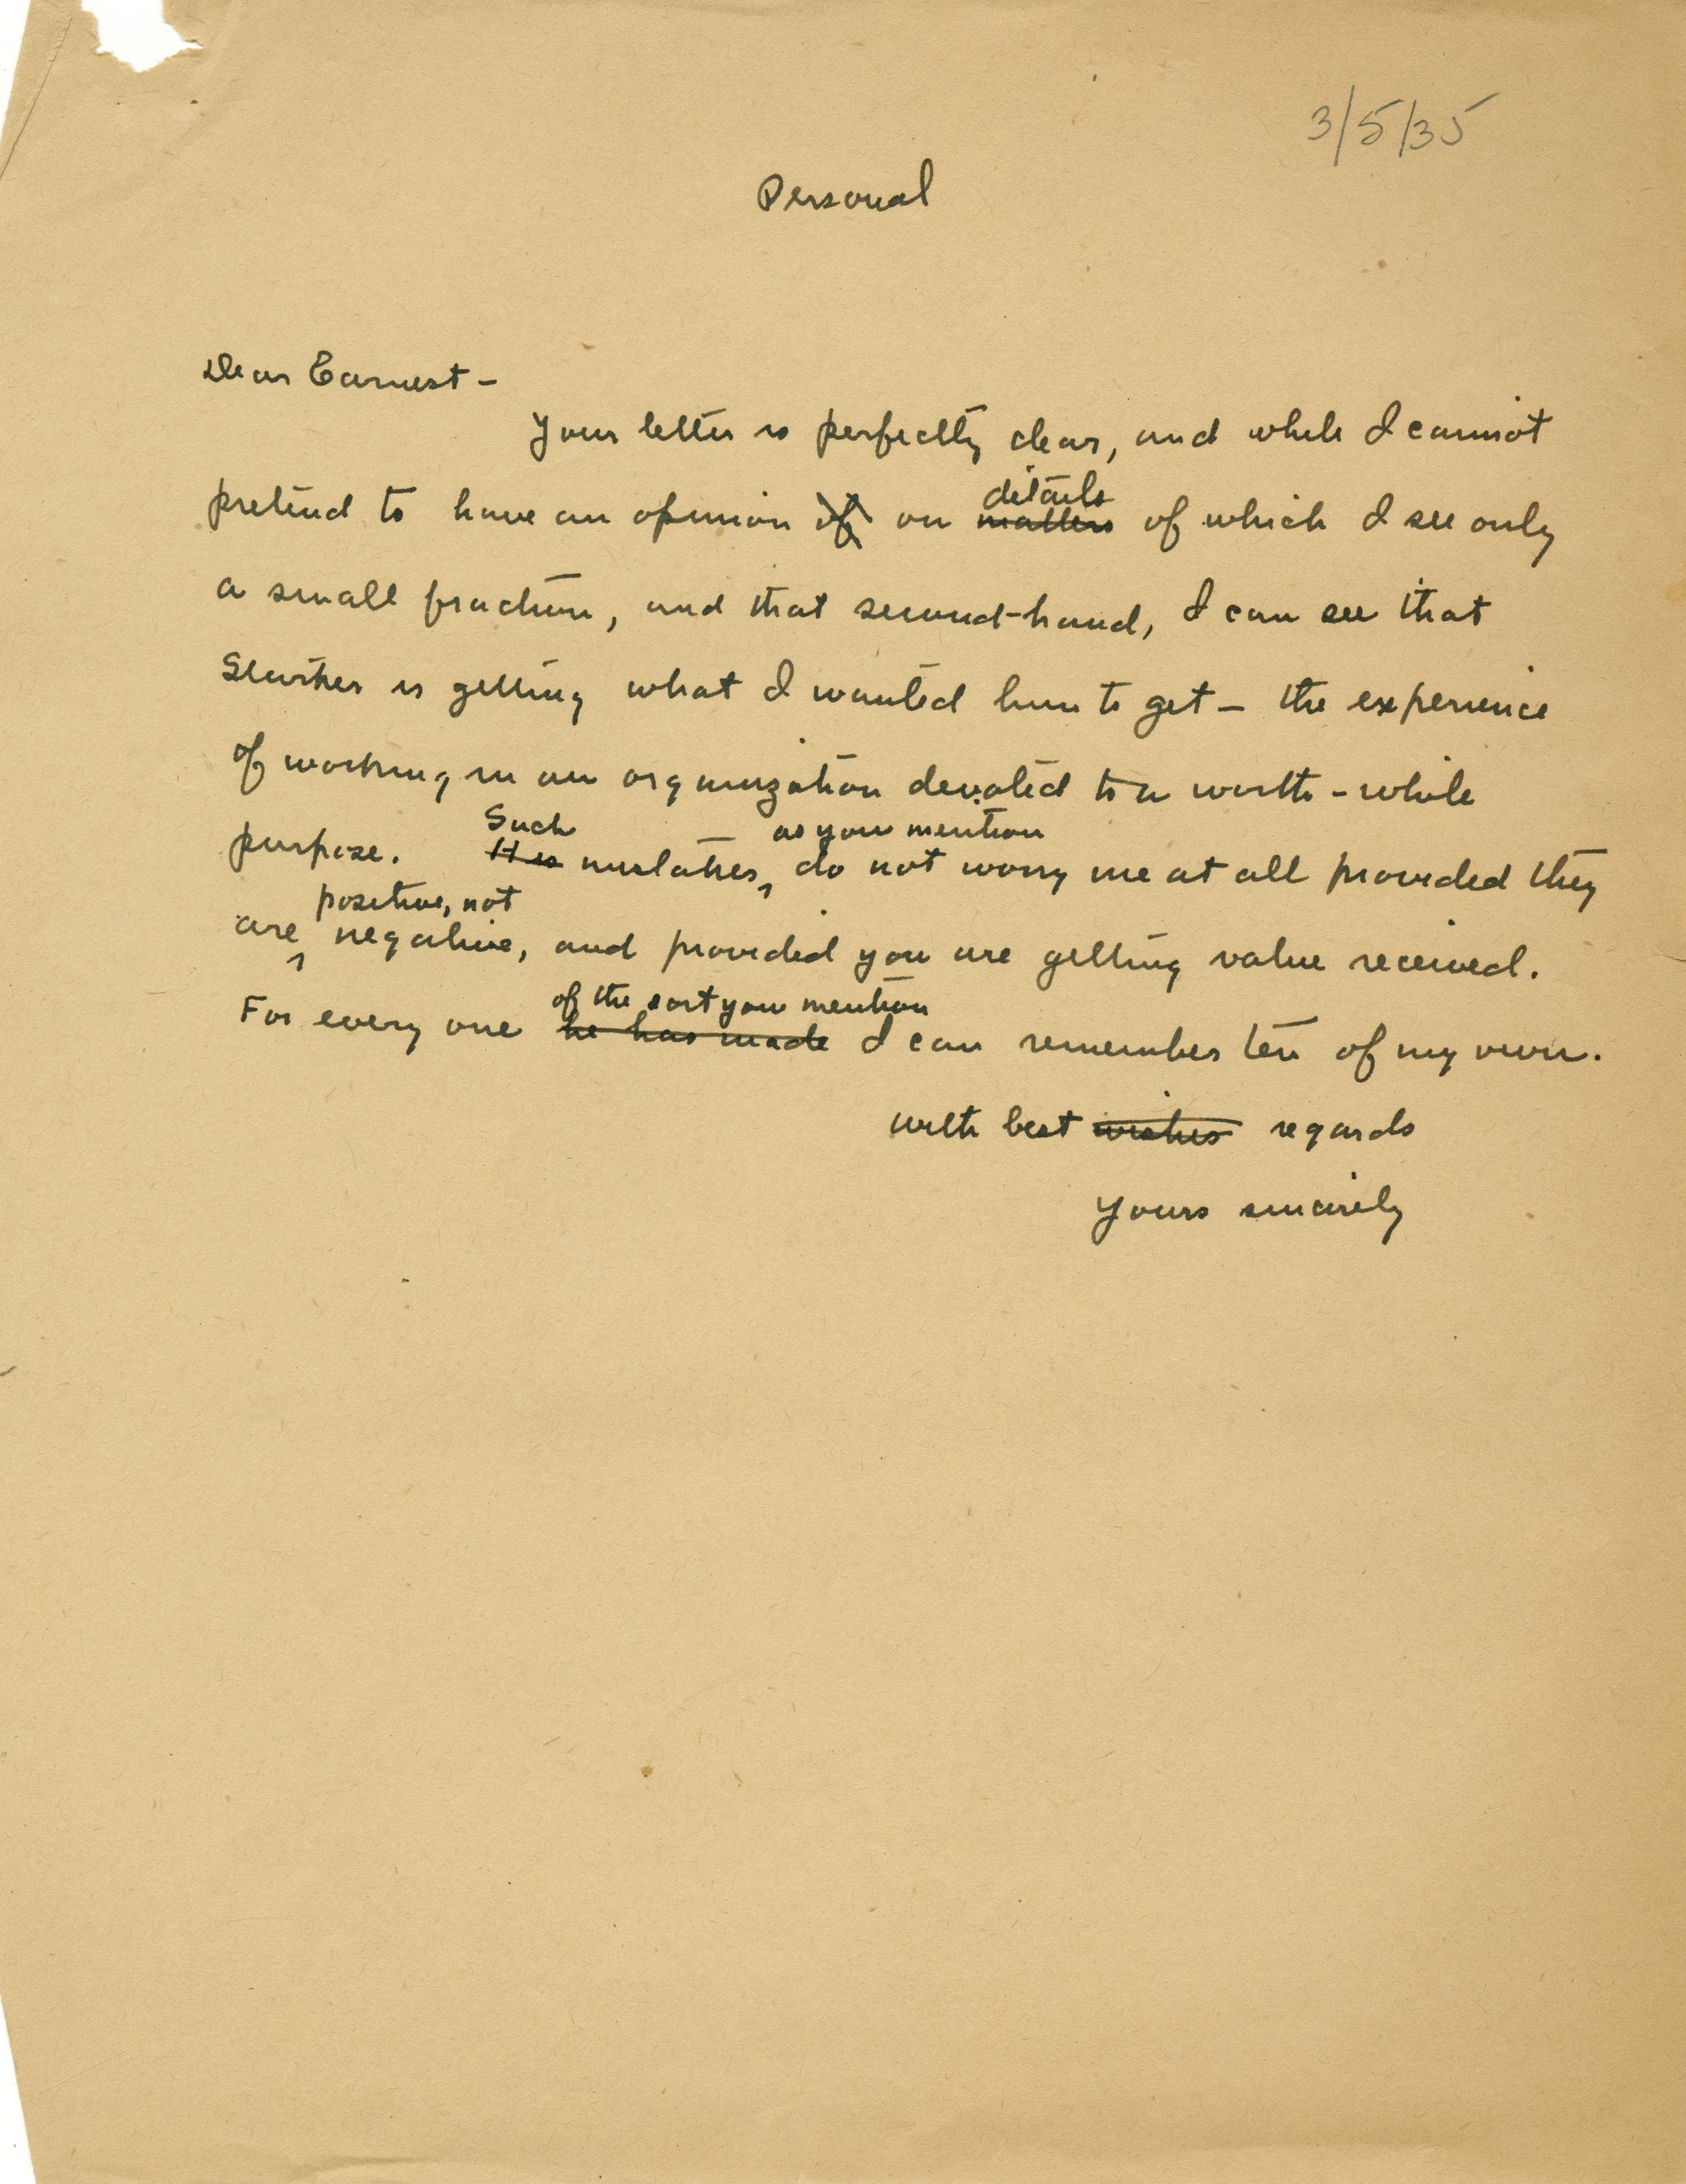 3/5/35
Personal
Dear Earnest -
Your letter is perfectly clear, and while I cannot
pretend to have an opinion of on matters details of which I see only
a small fraction, and that second-hand, I can see that
is getting what I wanted him to get - the experience
of working in an organization devoted to a worth-while
purpose. It is Such mistakes, as you mention do not worry me at all provided they
are positive, not negative, and provided you are getting value received.
For every one he has made of the sort you mention I can remember ten of my own.
with best wishes regards
Yours sincerely